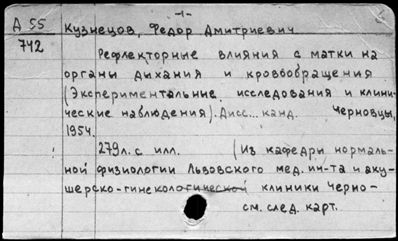 -1-
Д 55 Кузнецов, Федор Дмитриевич
742
Рефлекторные влияния с матки на
органы дыхания и кровообращения
(Экспериментальные исследования и клини-
ческие наблюдения). Дисс... канд. Черновцы,
1954.
279л. с илл. (Из кафедры нормаль-
ной физиологии Львовского мед. ин-та и аку-
шерско-гинекологической клиники Черно-
см. след. карт.